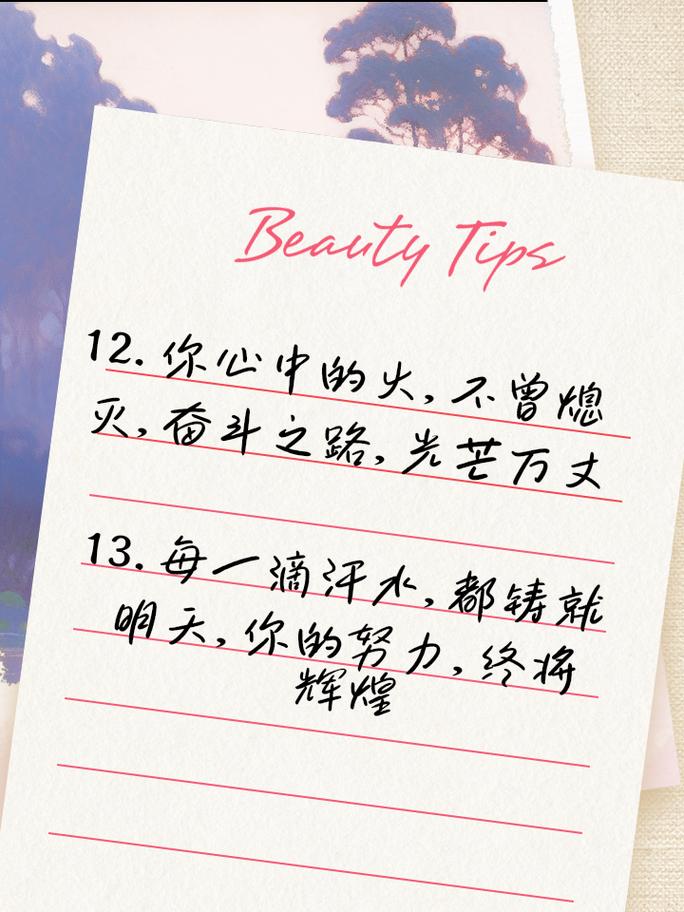 Beauty Tips
12. 你心中的火，不曾熄
灭，奋斗之路，光芒万丈
13. 每一滴汗水，都铸就
明天，你的努力，终将
辉煌